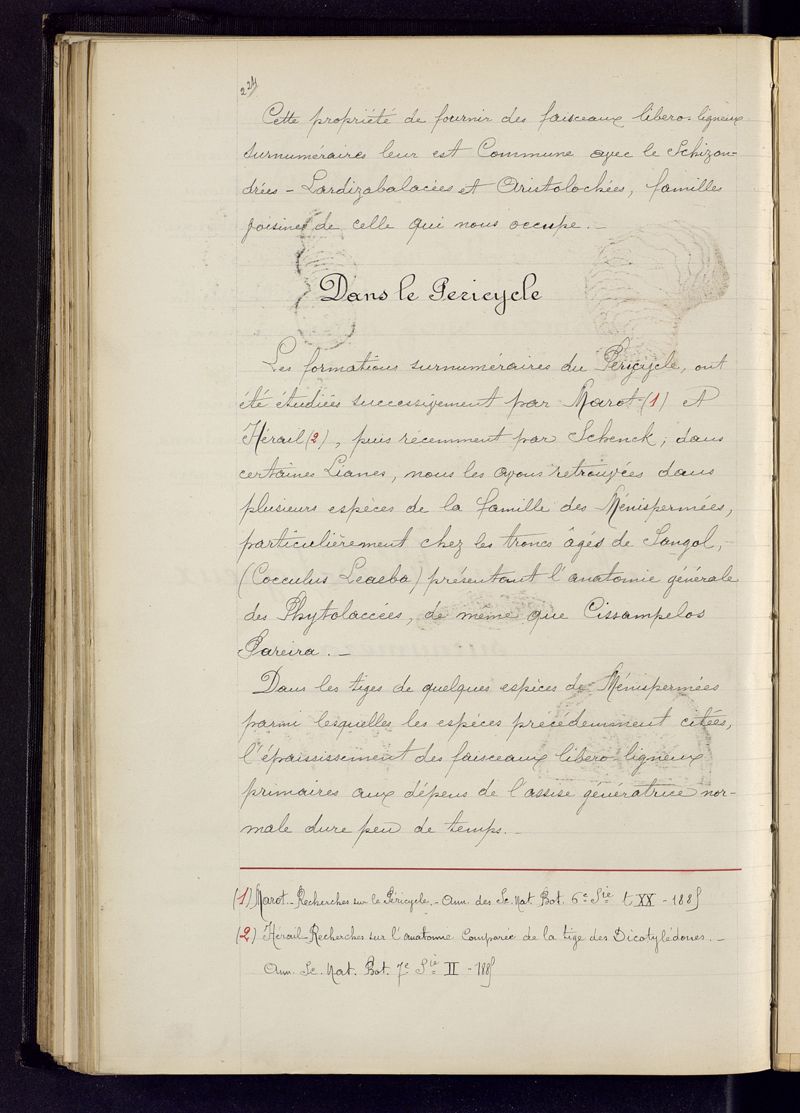 224
Cette propriété de fournir des faisceaux libero-ligneux
surnuméraires leur est Commune avec le Schizan-
drées - Lardizabalacées et Aristolochées, familles
voisines de celle qui nous occupe. -
Dans le Pericycle
Les formations surnuméraires du Péricycle, ont
été étudiées successivement par Marot (1) et
Hérail (2), puis récemment par Schenck; dans
certaines Lianes, nous les avons retrouvées dans
plusieurs espèces de la famille des Ménispermées,
particulièrement chez les troncs âgés de Sangol, -
(Cocculus Leaeba) présentant l'anatomie générale
des Phytolaccées, de même que Cissampelos
Pareira. -
Dans les tiges de quelques espèces de Ménispermées
parmi lesquelles les espèces précédemment citées,
l'épaississement des faisceaux libero ligneux
primaires aux dépens de l'assise génératrice nor-
male dure peu de temps. -
(1) Marot - Recherches sur le Péricycle. - Ann. des Sc. Nat. Bot. 6e Sie t XX - 1885
(2) Hérail - Recherches sur l'anatomie Comparée de la tige des Dicotylédones. -
Ann. Sc. Nat. Bot. 7e Sie II - 1885